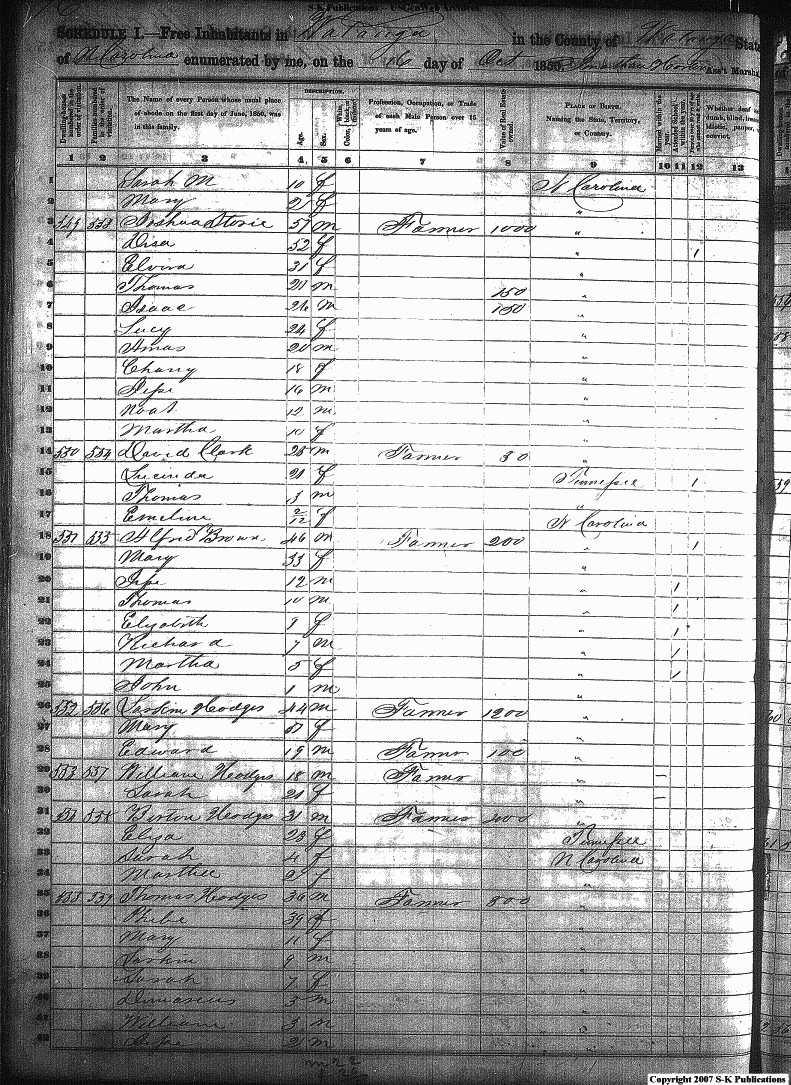 S-K Publications - USGenWeb Archives
SCHEDULE I.—Free Inhabitants in Watauga in the County of Watauga State
of N Carolina enumerated by me, on the 16 day of Oct 1850. Jonathan Horton Ass't Marshal
Dwelling-houses numbered in the order of visitation.
Families numbered in the order of visitation.
The Name of every Person whose usual place of abode on the first day of June, 1850, was in this family.
DESCRIPTION.
Age.
Sex.
Color,
Profession, Occupation, or Trade of each Male Person over 15 years of age.
Value of Real Estate owned.
PLACE OF BIRTH. Naming the State, Territory, or Country.
Married within the year.
Attended School within the year.
Whether deaf and dumb, blind, insane, idiotic, pauper, or convict.
1 2 3 4 5 6 7 8 9 10 11 12 13
1 Sarah M 10 f N Carolina
2 Mary 2 f "
3 Joshua Storie 57 m Farmer 1000 "
4 Disa 52 f " 1
5 Elvira 31 f "
6 Thomas m 150 "
7 Isaac 26 m 150 "
8 Lucy 24 f "
9 Amas 20 m "
10 Chany 18 f "
11 Jesse 16 m "
12 Noah 12 m "
13 Martha 10 f "
14 530 554 David Clark 25 m Farmer 30 "
15 Lucinda 21 f Tennessee 1
16 Thomas 3 m "
17 Emeline 2/12 f N Carolina
18 Alfred Brown 46 m Farmer 200 " 1
19 Mary 33 f "
20 Jesse 12 m " 1
21 Thomas 10 m " 1
22 Elizabeth f " 1
23 Richard 7 m " 1
24 Martha 5 f " 1
25 John 1 m "
26 552 556 Larkin Hodges 44 m Farmer 1200 "
27 Mary f "
28 Edward 19 m Farmer 100 "
29 553 557 William Hodges 18 m Farmer "
30 Sarah 21 f "
31 558 Burton Hodges 31 m Farmer "
32 Eliza 28 f Tennessee
33 Sarah 4 f N Carolina
34 f "
35 559 Thomas Hodges 36 m Farmer 800 "
36 Phebe 39 f "
37 Mary 11 f "
38 Larkin 9 m "
39 Sarah 7 f "
40 Damascus 5 m "
41 William 3 m "
42 Jesse m "
m 22
Copyright 2007 S-K Publications